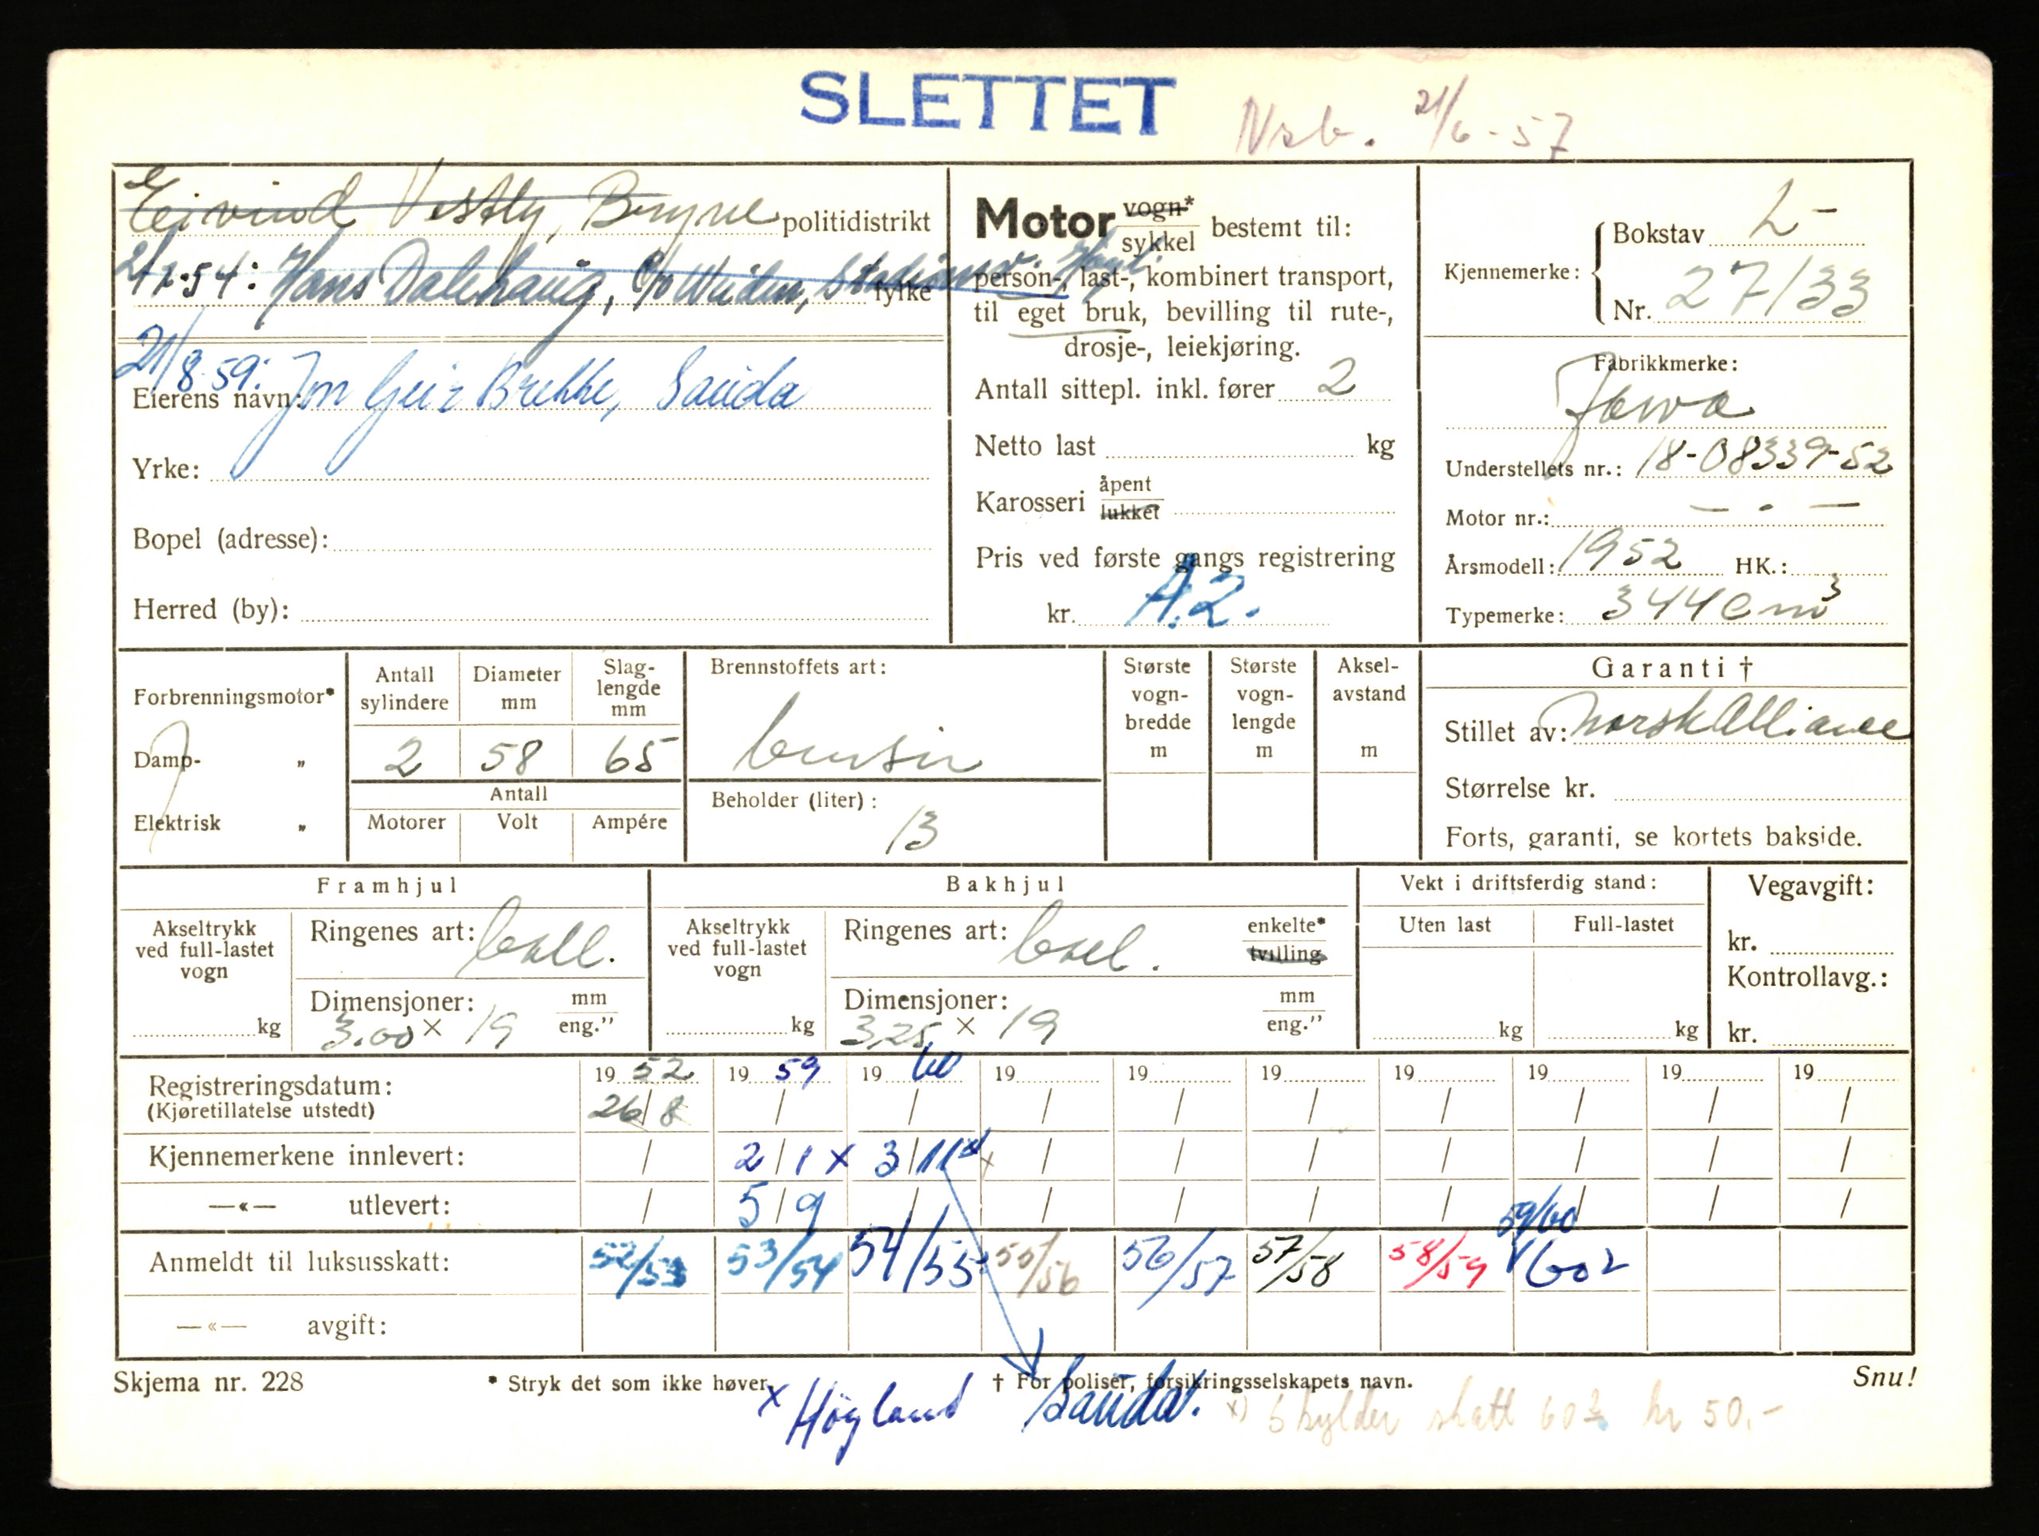 SLETTET
21/6-57
Eivind Vestly, Bryne politidistrikt
54: Hans Dalehaug, c/o fylke
21/8 59: Jon Geir Brekke, Sauda
Eierens navn:
Yrke:
Bopel (adresse):
Herred (by):
Motor vogn* sykkel bestemt til:
person-, last-, kombinert transport,
til eget bruk, bevilling til rute-,
drosje-, leiekjøring.
Antall sittepl. inkl. fører 2
Netto last kg
Karosseri åpent lukket
Pris ved første gangs registrering
kr. A.2.
Kjennemerke: Bokstav L-
Nr. 27133
Fabrikkmerke:
Jawa
Understellets nr.: 18-08339-52
Motor nr.: - . -
Årsmodell: 1952 HK.:
Typemerke: 344 cm3
Forbrenningsmotor*
Damp- "
Elektrisk "
Antall sylindere Diameter mm Slag-lengde mm
2 58 65
Antall
Motorer Volt Ampére
Brennstoffets art:
bensin
Beholder (liter):
13
Største vogn-bredde m
Største vogn-lengde m
Aksel-avstand m
Garanti †
Stillet av: Norsk Alliance
Størrelse kr.
Forts, garanti, se kortets bakside.
Framhjul
Akseltrykk ved full-lastet vogn kg
Ringenes art: ball.
Dimensjoner: mm eng."
3.00 × 19
Bakhjul
Akseltrykk ved full-lastet vogn kg
Ringenes art: ball. enkelte* tvilling
Dimensjoner: mm eng."
3,25 × 19
Vekt i driftsferdig stand:
Uten last Full-lastet
kg kg
Vegavgift:
kr.
Kontrollavg.:
kr.
Registreringsdatum: 19 52 19 59 19 60 19 19 19 19 19 19 19
(Kjøretillatelse utstedt) 26/8 / / / / / / / / /
Kjennemerkene innlevert: / 2/1 x 3/11 x / / / / / / /
—«— utlevert: / 5/9 / / / / / / / /
59/60
Anmeldt til luksusskatt: 52/53 53/54 54/55 55/56 56/57 57/58 58/59 V602
—«— avgift:
Skjema nr. 228 * Stryk det som ikke høver. † For poliser, forsikringsselskapets navn. Snu!
x Høyland Sauda. x) Skylder skatt 60 kr 50.-